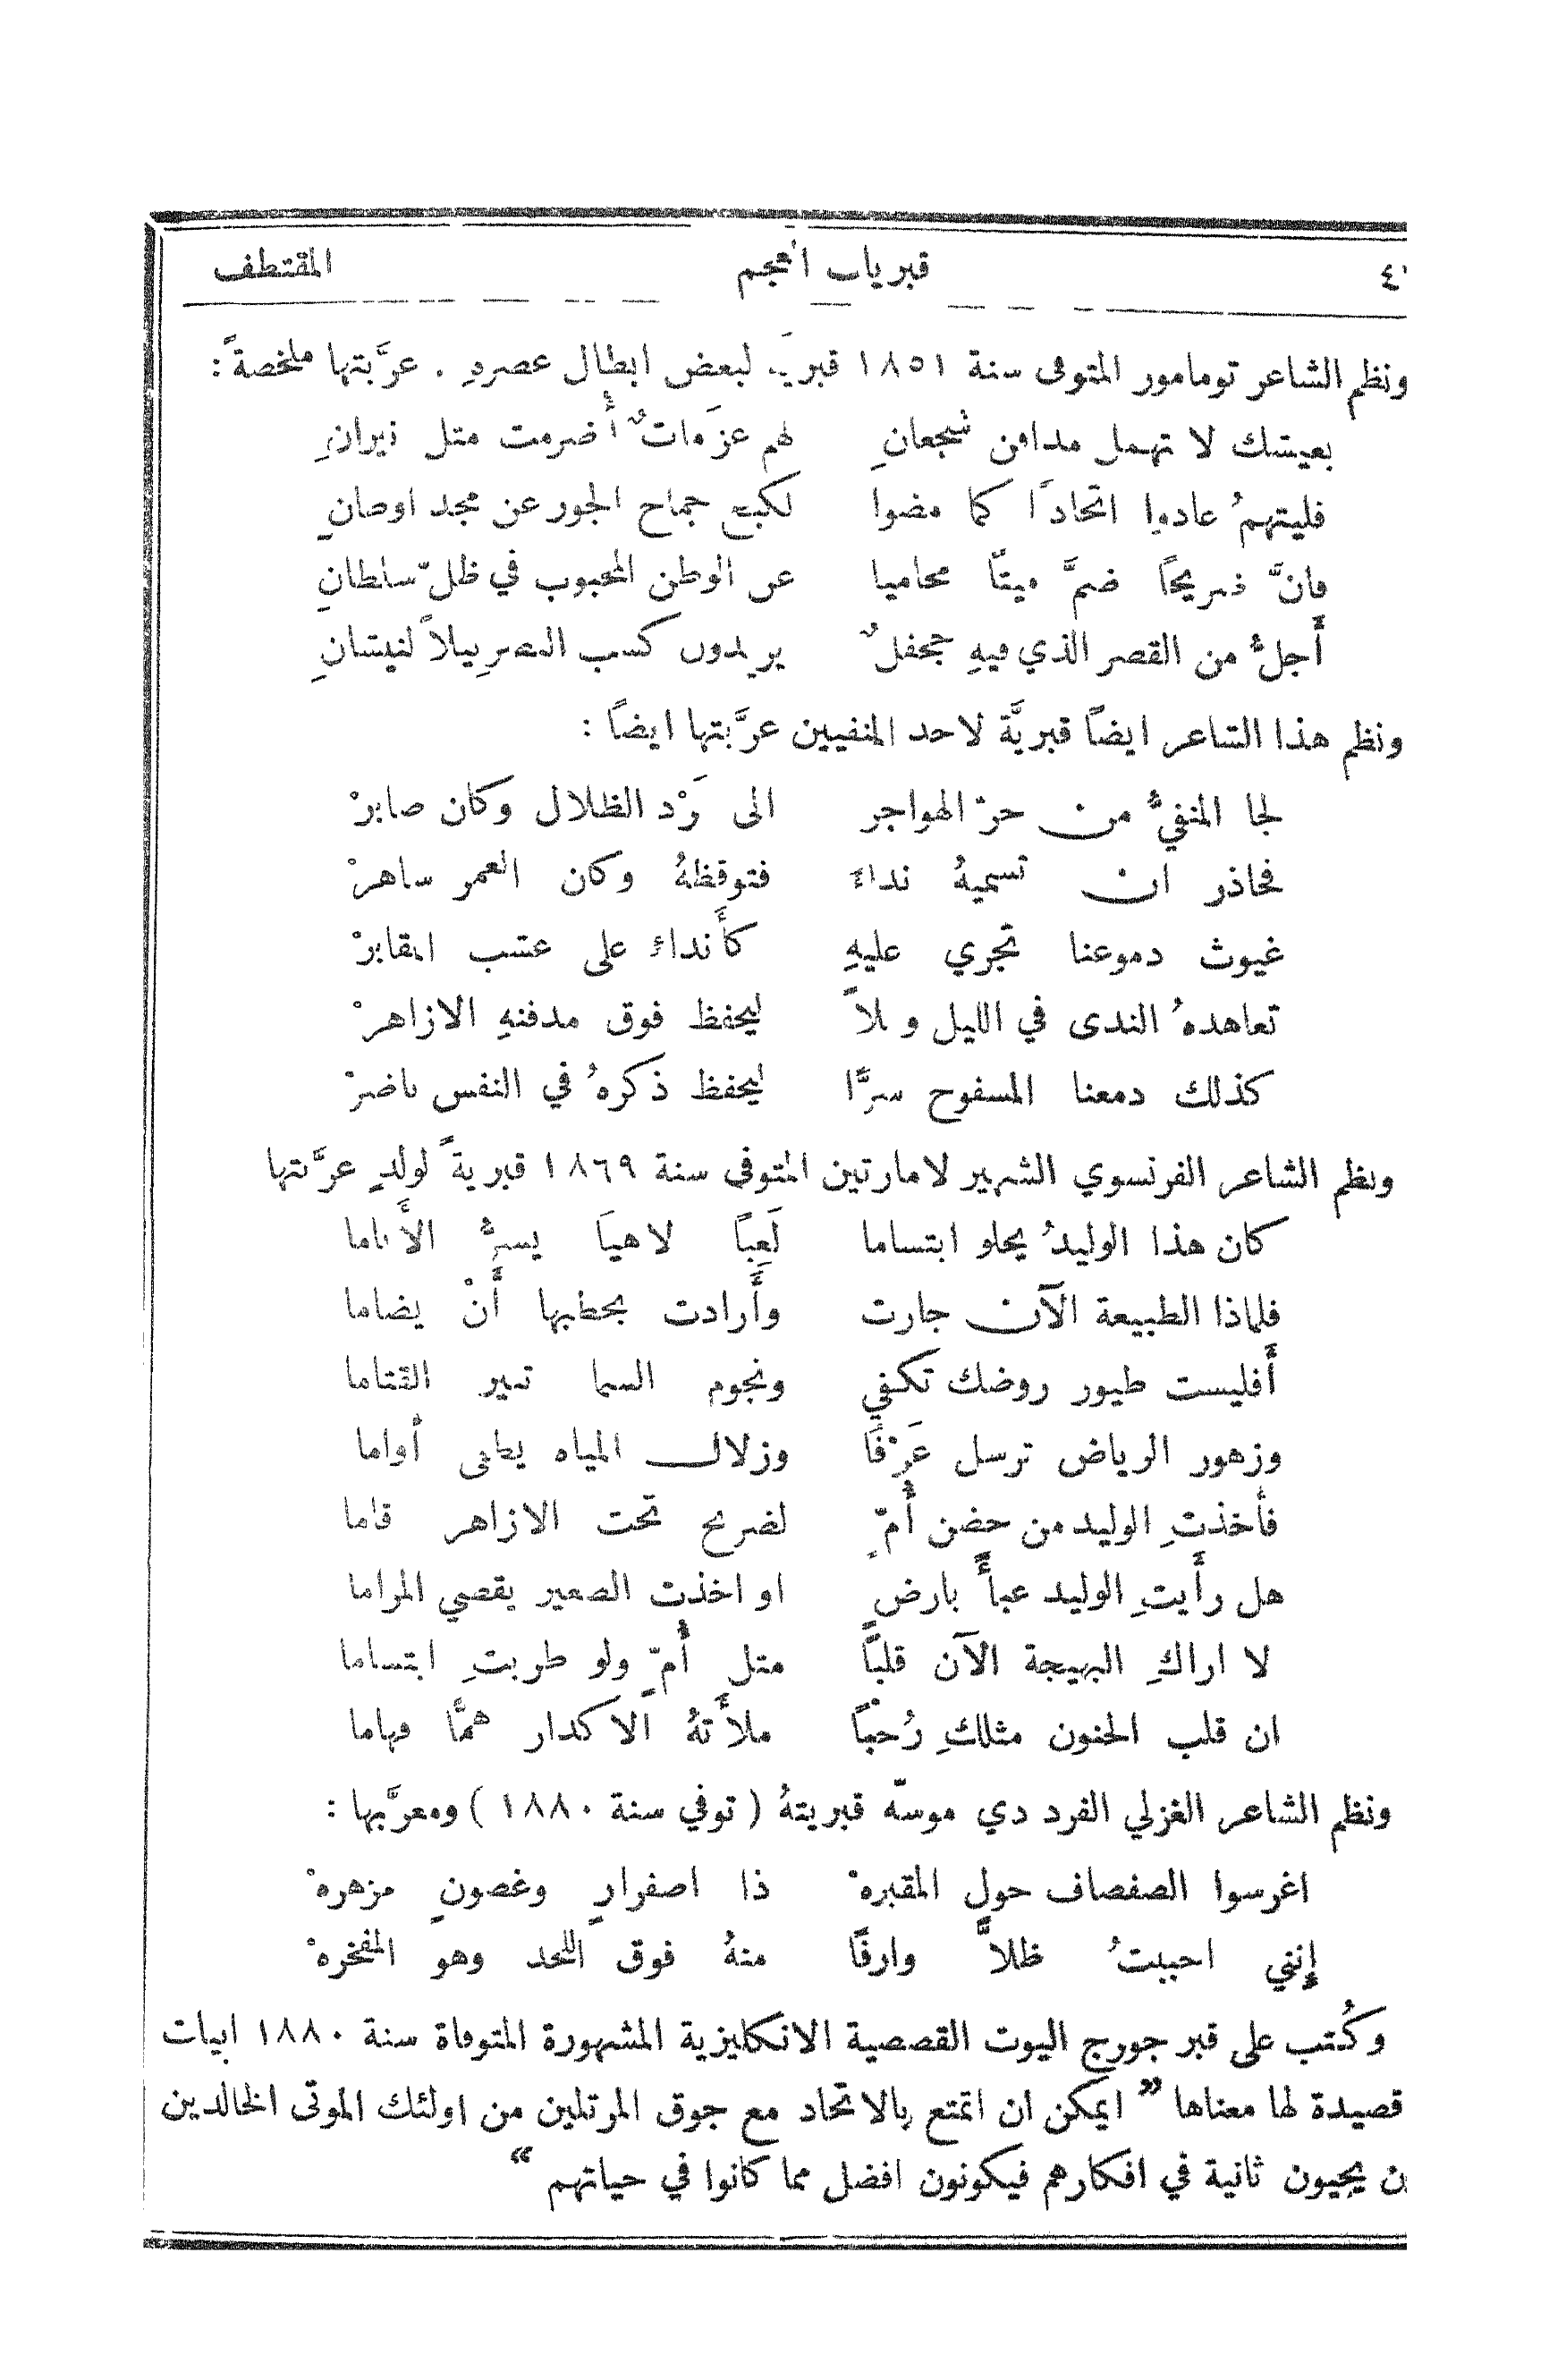 ٤ قبريات العجم المقتطف
ونظم الشاعر تومامور المتوفى سنة ١٨٥١ قبريَّة لبعض ابطال عصرهِ . عرَّبتها ملخصةً :
بعيشك لا تهمل مدافن شجعانِ لهم عزَمات أُضرمت مثل نيرانِ
فليتهمُ عادوا اتحادًا كما مضوا لكبح جماح الجور عن مجد اوطانِ
فانَّ ضريحًا ضمَّ ميتًا محاميا عن الوطن المحبوب في ظلّ سلطانِ
أَجلُّ من القصر الذي فيهِ جحفلٌ يريدون كسب النصر بيلاً لنيشانِ
ونظم هذا الشاعر ايضًا قبريَّة لاحد المنفيين عرَّبتها ايضًا :
لجا المنفيُّ من حرّ الهواجر الى بَرْد الظلال وكان صابرْ
فحاذر ان تسميهُ نداءً فتوقظهُ وكان العمر ساهرْ
غيوث دموعنا تجري عليهِ كأَنداءٍ على عشب المقابرْ
تعاهدهُ الندى في الليل وبلاً ليحفظ فوق مدفنهِ الازاهرْ
كذلك دمعنا المسفوح سرًّا ليحفظ ذكرهُ في النفس ناضرْ
ونظم الشاعر الفرنسوي الشهير لامارتين المتوفى سنة ١٨٦٩ قبريةً لولدٍ عرَّبتها
كان هذا الوليدُ يحلو ابتساما لَعِبًا لاهيًا يسرُّ الأَناما
فلماذا الطبيعة الآن جارت وأَرادت بخطبها أَنْ يضاما
أَفليست طيور روضك تكفي ونجوم السما تنير القتاما
وزهور الرياض ترسل عَرْفًا وزلال المياه يطفي أُواما
فأخذتِ الوليد من حضن أُمّ لضريح تحت الازاهر قاما
هل رأَيتِ الوليد عبأً بارضٍ او اخذت الصغير يقصي المراما
لا اراكِ البهيجة الآن قلبًا مثل أُمّ ولو طربتِ ابتساما
ان قلب الحنون مثلكِ رُحْبًا ملأَتهُ الاكدار همًّا فهاما
ونظم الشاعر الغزلي الفرد دي موسّه قبريتهُ ( توفي سنة ١٨٨٠ ) ومعرَّبها :
اغرسوا الصفصاف حول المقبرهْ ذا اصفرارٍ وغصونٍ مزهرهْ
إنني احببتُ ظلاًّ وارفًا منهُ فوق اللحد وهو المفخرهْ
وكُتب على قبر جورج اليوت القصصية الانكليزية المشهورة المتوفاة سنة ١٨٨٠ ابيات
قصيدة لها معناها ” ايمكن ان اتمتع بالاتحاد مع جوق المرتلين من اولئك الموتى الخالدين
ن يحيون ثانية في افكارهم فيكونون افضل مما كانوا في حياتهم “